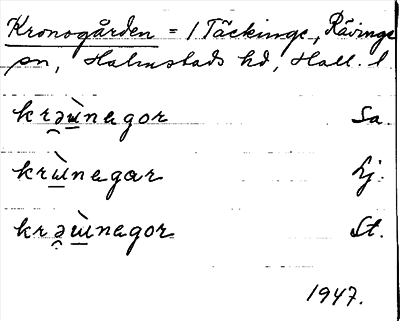 Kronogården = 1 Täckinge, Rävinge
sn, Halmstads hd, Hall. l
krə̯ù̱negor Sa.
krù̱negar Lj.
krə̯ù̱negor St.
1947.